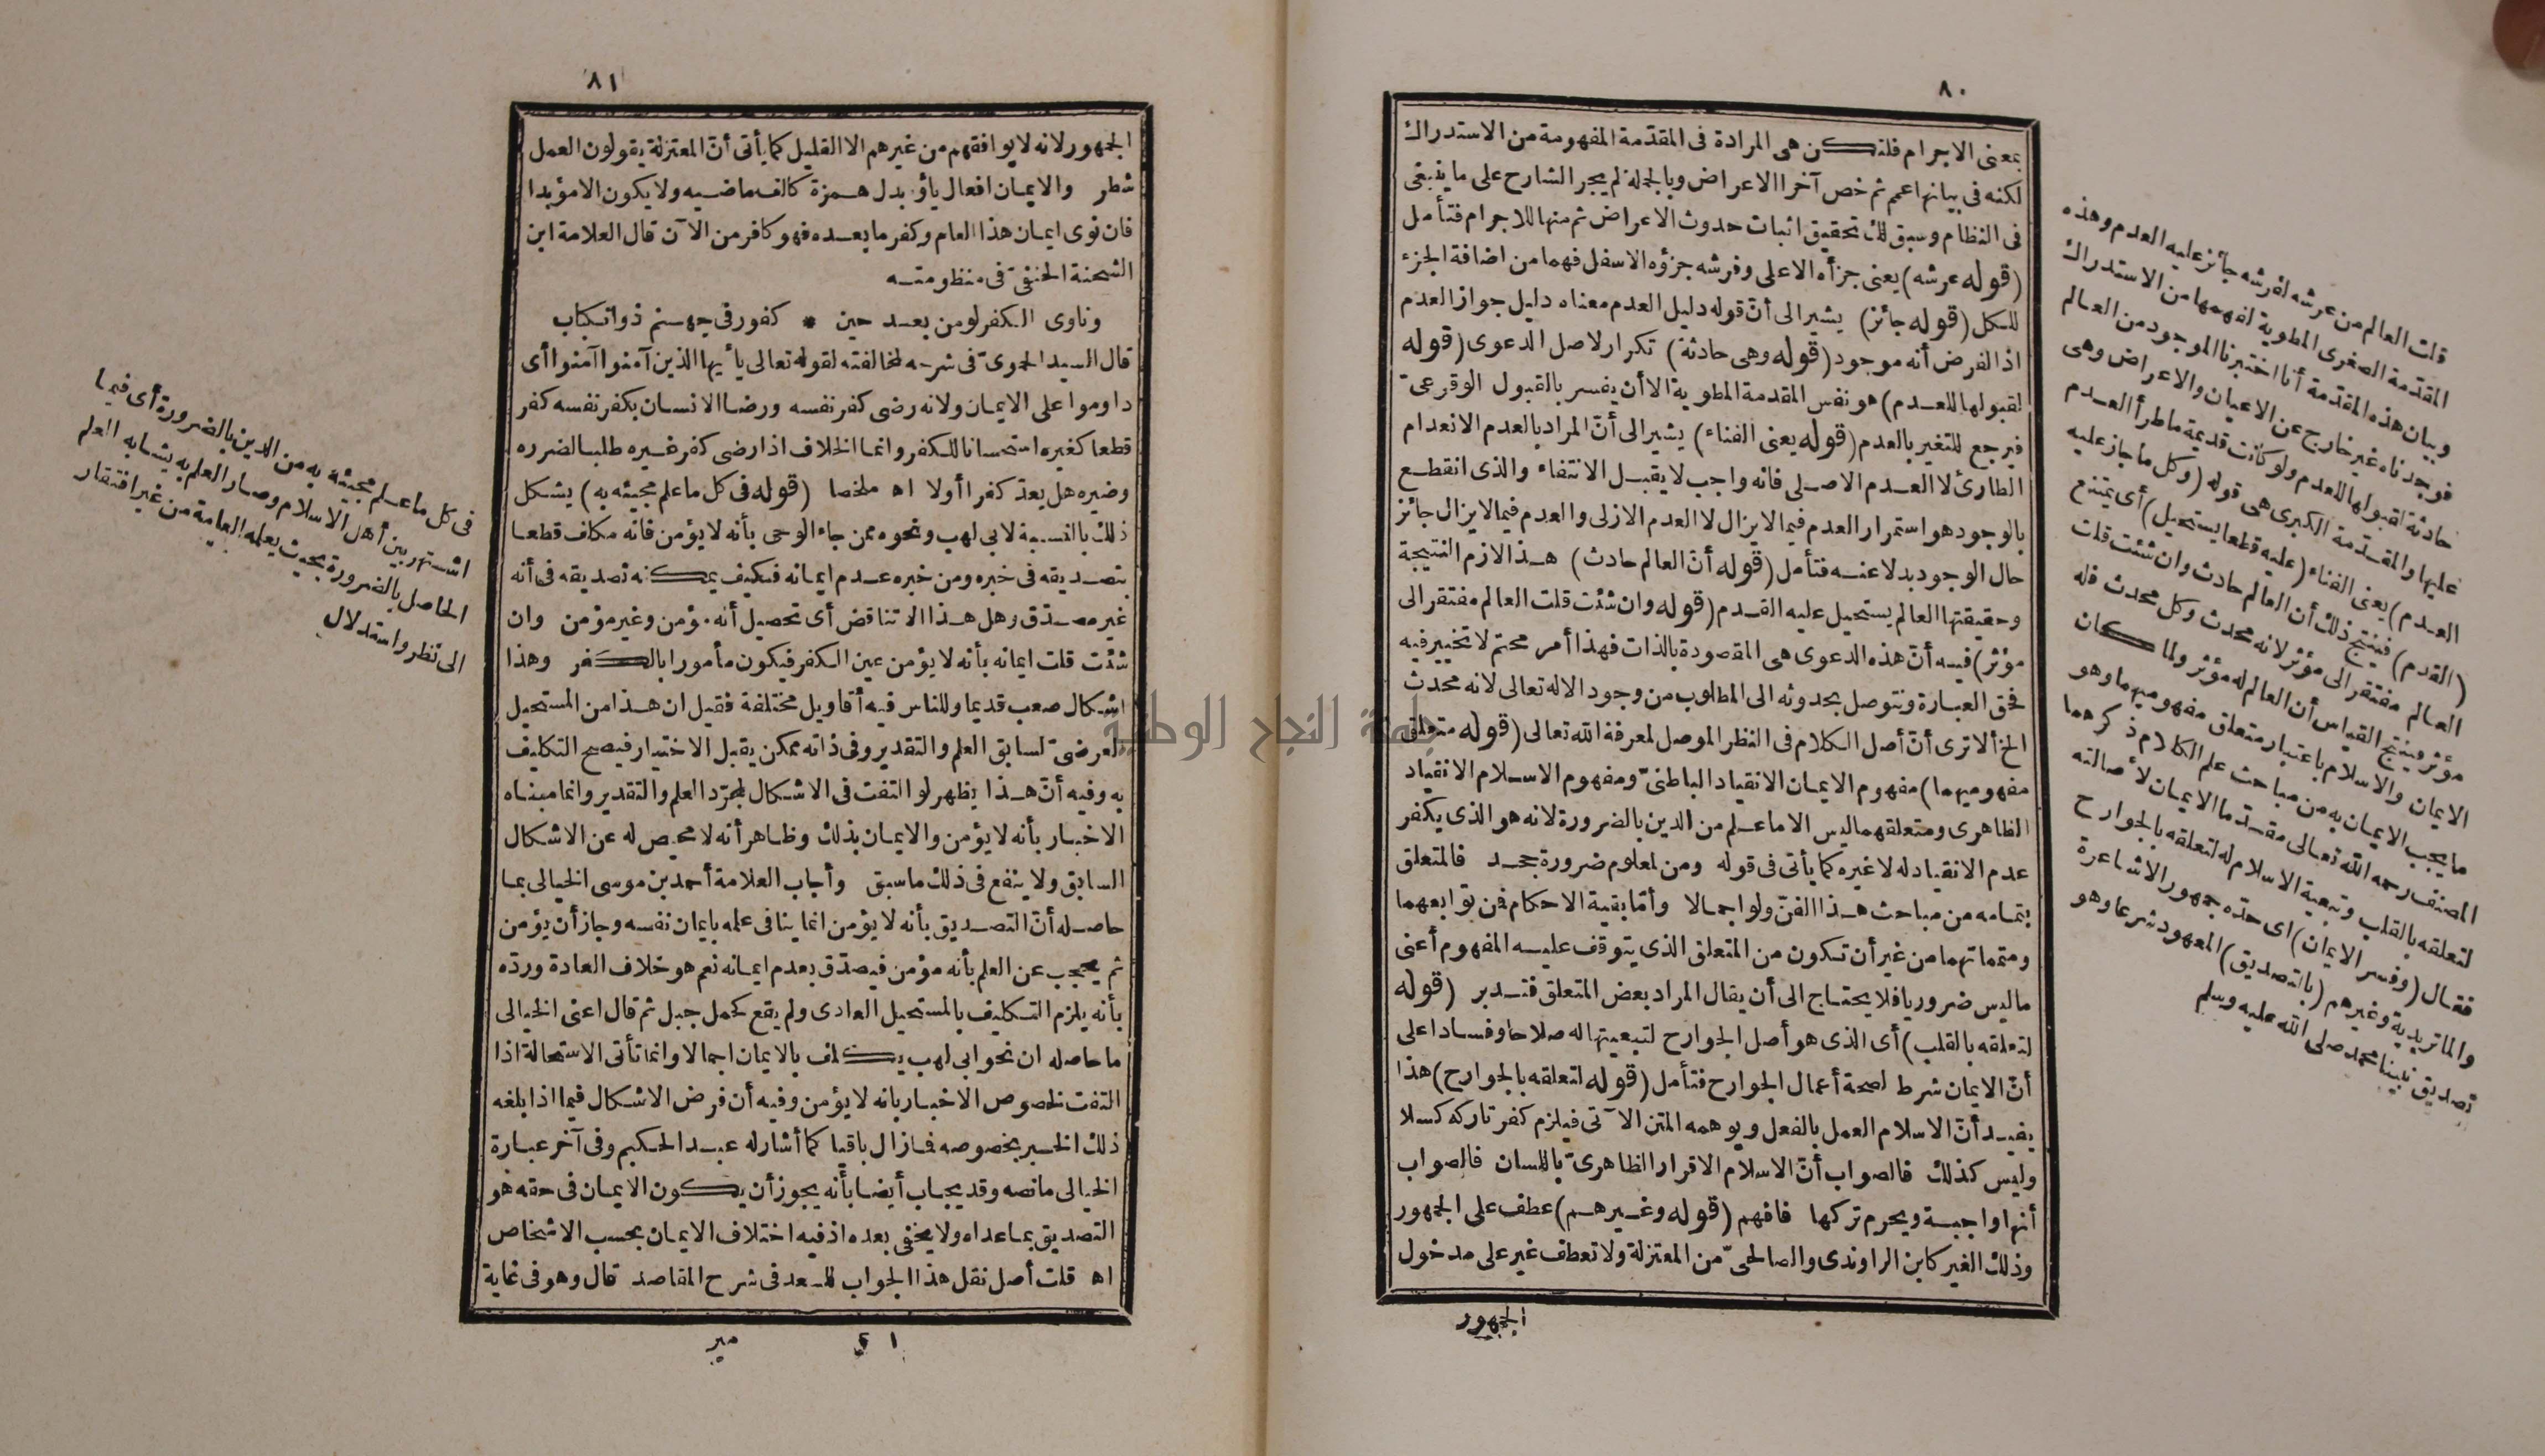 ٨٠
بمعنى الاجرام فلتكن هى المرادة فى المقدّمة المفهومة من الاستدراك
لكنه فى بيانها عمم ثم خص آخرا الاعراض وبالجملة لم يجر الشارح على ما ينبغى
فى النظام وسبق لك تحقيق اثبات حدوث الاعراض ثم منها للاجرام فتأمل
(قوله عرشه) يعنى جزأه الاعلى وفرشه جزؤه الاسفل فهما من اضافة الجزء
للكل (قوله جائز) يشير الى أنّ قوله دليل العدم معناه دليل جواز العدم
اذ الفرض أنه موجود (قوله وهى حادثة) تكرار لاصل الدعوى (قوله
لقبولها للعدم) هو نفس المقدمة المطوية الا أن يفسر بالقبول الوقوعىّ
فيرجع للتغير بالعدم (قوله يعنى الفناء) يشير الى أنّ المراد بالعدم الانعدام
الطارئ لا العدم الاصلى فانه واجب لا يقبل الانتفاء والذى انقطع
بالوجود هو استمرار العدم فيما لا يزال لا العدم الازلى والعدم فيما لا يزال جائز
حال الوجود بدلا عنه فتأمل (قوله أنّ العالم حادث) هذا لازم النتيجة
وحقيقتها العالم يستحيل عليه القدم (قوله وان شئت قلت العالم مفتقر الى
مؤثر) فيه أنّ هذه الدعوى هى المقصودة بالذات فهذا أمر محتم لا تخيير فيه
فحق العبارة ونتوصل بحدوثه الى المطلوب من وجود الاله تعالى لانه محدث
الخ ألا ترى أنّ أصل الكلام فى النظر الموصل لمعرفة الله تعالى (قوله متعلق
مفهوميهما) مفهوم الايمان الانقياد الباطنىّ ومفهوم الاسلام الانقياد
الظاهرى ومتعلقهما ليس الا ما علم من الدين بالضرورة لانه هو الذى يكفر
عدم الانقياد له لا غيره كما يأتى فى قوله ومن لمعلوم ضرورة جحد فالمتعلق
بتمامه من مباحث هذا الفنّ ولو اجمالا وأمّا بقية الاحكام فمن توابعهما
ومتمماتهما من غير أن تكون من المتعلق الذى يتوقف عليه المفهوم أعنى
ما ليس ضروريا فلا يحتاج الى أن يقال المراد بعض المتعلق فتدبر (قوله
لتعلقه بالقلب) أى الذى هو أصل الجوارح لتبعيتها له صلاحا وفسادا على
أنّ الايمان شرط لصحة أعمال الجوارح فتأمل (قوله لتعلقه بالجوارح) هذا
يفيد أنّ الاسلام العمل بالفعل ويوهمه المتن الآتى فيلزم كفر تاركه كسلا
وليس كذلك فالصواب أنّ الاسلام الاقرار الظاهرىّ باللسان فالصواب
أنها واجبة ويحرم تركها فافهم (قوله وغيرهم) عطف على الجمهور
وذلك الغير كابن الراوندى والصالحىّ من المعتزلة ولا تعطف غير على مدخول
الجمهور
قلت العالم من عرشه لفرشه جائز عليه العدم وهذه
المقدّمة الصغرى المطوية لفهمها من الاستدراك
وبيان هذه المقدّمة أنا اختبرنا الموجود من العالم
فوجدناه غير خارج عن الاعيان والاعراض وهى
حادثة لقبولها للعدم ولو كانت قديمة ما طرأ العدم
عليها والمقدّمة الكبرى هى قوله (وكل ما جاز عليه
العدم) يعنى الفناء (عليه قطعا يستحيل) أى يمتنع
(القدم) فينتج ذلك أن العالم حادث وان شئت قلت
العالم مفتقر الى مؤثر لانه محدث وكل محدث فله
مؤثر وينتج القياس أن العالم له مؤثر ولما كان
الايمان والاسلام باعتبار متعلق مفهوميهما وهو
ما يجب الايمان به من مباحث علم الكلام ذكرهما
المصنف رحمه الله تعالى مقدّما الايمان لأصالته
لتعلقه بالقلب وتبعية الاسلام له لتعلقه بالجوارح
فقال (وفسر الايمان) اى حدّه جمهور الاشاعرة
والماتريدية وغيرهم (بالتصديق) المعهود شرعا وهو
تصديق نبينا محمد صلى الله عليه وسلم
٨١
الجمهور لانه لا يوافقهم من غيرهم الا القليل كما يأتى أنّ المعتزلة يقولون العمل
شطر والايمان افعال ياؤه بدل همزة كالف ماضيه ولا يكون الا مؤبدا
فان نوى ايمان هذا العام وكفر ما بعده فهو كافر من الآن قال العلامة ابن
الشحنة الحنفىّ فى منظومته
وناوى الكفر لو من بعد حين * كفور فى جهنم ذو انكباب
قال السيد الحموىّ فى شرحه لمخالفته لقوله تعالى يأيها الذين آمنوا آمنوا أى
داوموا على الايمان ولانه رضى كفر نفسه ورضا الانسان بكفر نفسه كفر
قطعا كغيره استحسانا للكفر وانما الخلاف اذا رضى كفر غيره طلبا لضرره
وضيره هل يعدّ كفرا أولا اه ملخصا (قوله فى كل ما علم مجيئه به) يشكل
ذلك بالنسبة لابى لهب ونحوه ممن جاء الوحى بأنه لا يؤمن فانه مكلف قطعا
بتصديقه فى خبره ومن خبره عدم ايمانه فكيف يمكنه تصديقه فى أنه
غير مصدّق وهل هذا الا تناقض أى تحصيل أنه مؤمن وغير مؤمن وان
شئت قلت ايمانه بأنه لا يؤمن عين الكفر فيكون مأمورا بالكفر وهذا
اشكال صعب قديما وللناس فيه أقاويل مختلفة فقيل ان هذا من المستحيل
العرضىّ لسابق العلم والتقدير وفى ذاته ممكن يقبل الاختيار فيصح التكليف
به وفيه أنّ هذا يظهر لو التفت فى الاشكال لمجرّد العلم والتقدير وانما مبناه
الاخبار بأنه لا يؤمن والايمان بذلك وظاهر أنه لا محيص له عن الاشكال
السابق ولا ينفع فى ذلك ما سبق وأجاب العلامة أحمد بن موسى الخيالى بما
حاصله أنّ التصديق بأنه لا يؤمن انما ينافى علمه بايمان نفسه وجاز أن يؤمن
ثم يحجب عن العلم بأنه مؤمن فيصدّق بعدم ايمانه نعم هو خلاف العادة وردّه
بأنه يلزم التكليف بالمستحيل العادى ولم يقع كحمل جبل ثم قال اعنى الخيالى
ما حاصله ان نحو ابى لهب يكلف بالايمان اجمالا وانما تأتى الاستحالة اذا
التفت لخصوص الاخبار بانه لا يؤمن وفيه أن فرض الاشكال فيما اذا بلغه
ذلك الخبر بخصوصه فما زال باقيا كما أشار له عبد الحكيم وفى آخر عبارة
الخيالى ما نصه وقد يجاب أيضا بأنه يجوز أن يكون الايمان فى حقه هو
التصديق بما عداه ولا يخفى بعده اذ فيه اختلاف الايمان بحسب الاشخاص
اه قلت أصل نقل هذا الجواب للسعد فى شرح المقاصد قال وهو فى غاية
١١ مير
فى كل ما علم مجيئه به من الدين بالضرورة أى فيما
اشتهر بين أهل الاسلام وصار العلم به يشابه العلم
الحاصل بالضرورة بحيث يعلمه العامة من غير افتقار
الى نظر واستدلال
جامعة النجاح الوطنية